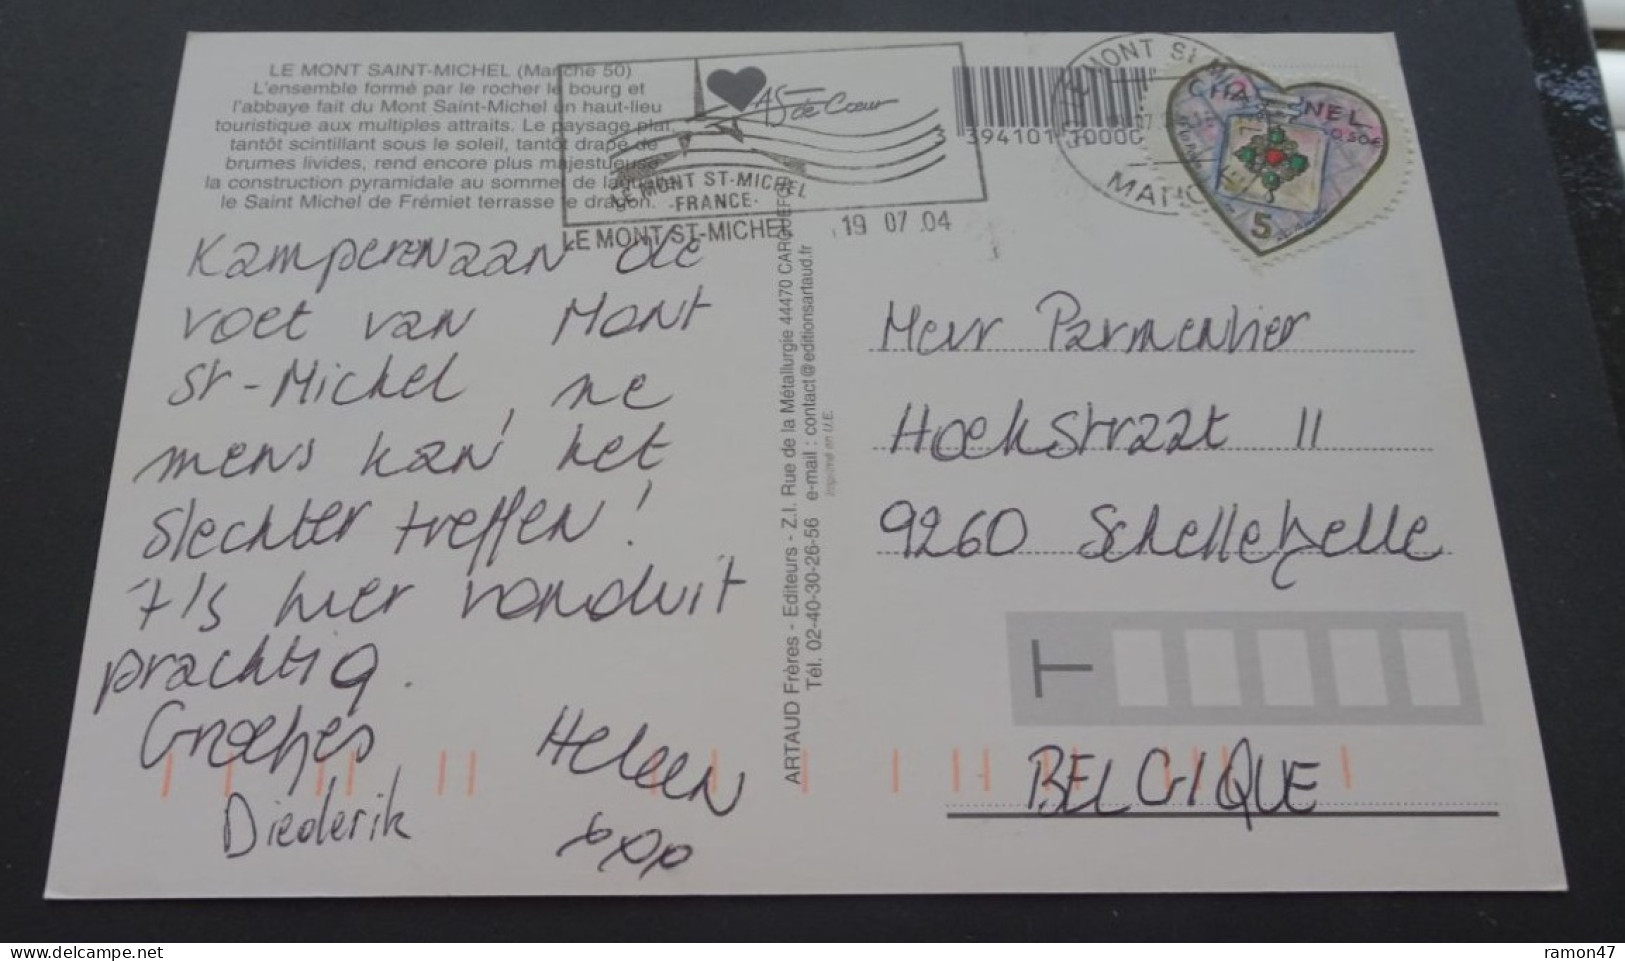 LE MONT SAINT-MICHEL (Manche 50)
L'ensemble formé par le rocher le bourg et
l'abbaye fait du Mont Saint-Michel un haut-lieu
touristique aux multiples attraits. Le paysage plat,
tantôt scintillant sous le soleil, tantôt drapé de
brumes livides, rend encore plus majestueuse
la construction pyramidale au sommet de laquelle
le Saint Michel de Frémiet terrasse le dragon.
AS de Cœur
LE MONT ST-MICHEL
-FRANCE-
LE MONT ST-MICHEL 19 07 04
3 394101 10000
LE MONT ST-M
CHANEL
0,50€
5
Kamperen aan de
voet van Mont
St-Michel, ne
mens kan het
slechter treffen!
't Is hier ronduit
prachtig.
Groetjes
Diederik
Heleen
xxx
ARTAUD Frères - Editeurs - Z.I. Rue de la Métallurgie 44470 CARQUEFOU
Tél. 02-40-30-26-56 e-mail : contact@editionsartaud.fr
Imprimé en U.E.
Meur Parmentier
Hoekstraat 11
9260 Schellebelle
T
BELGIQUE
ramon47